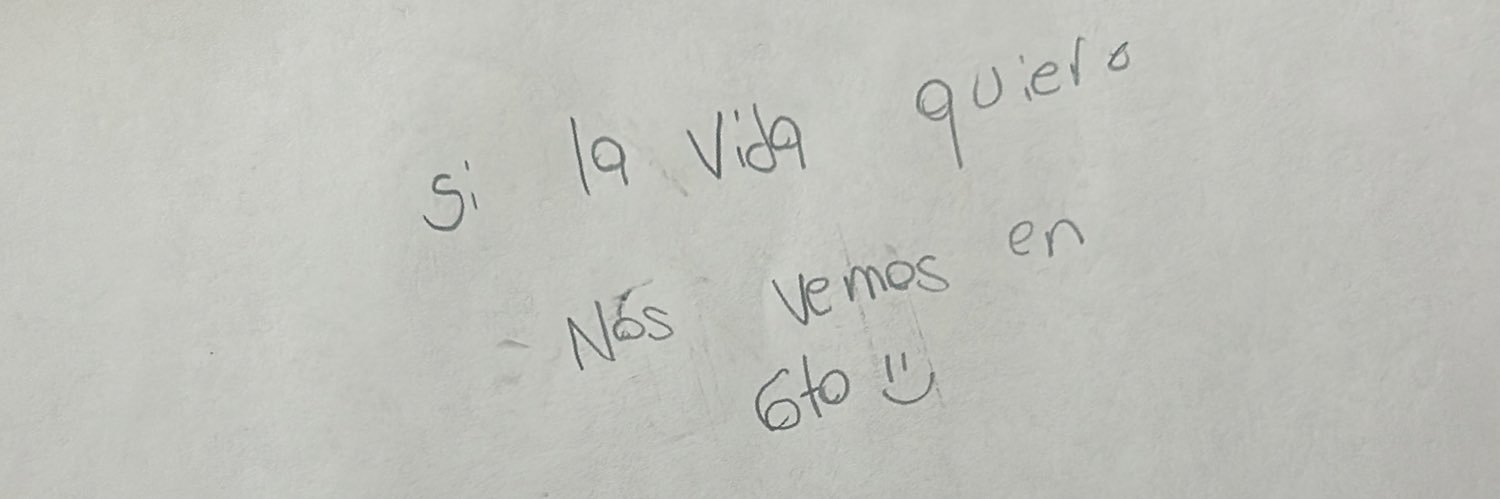 Si la vida quiero
Nos vemos en
6to :)